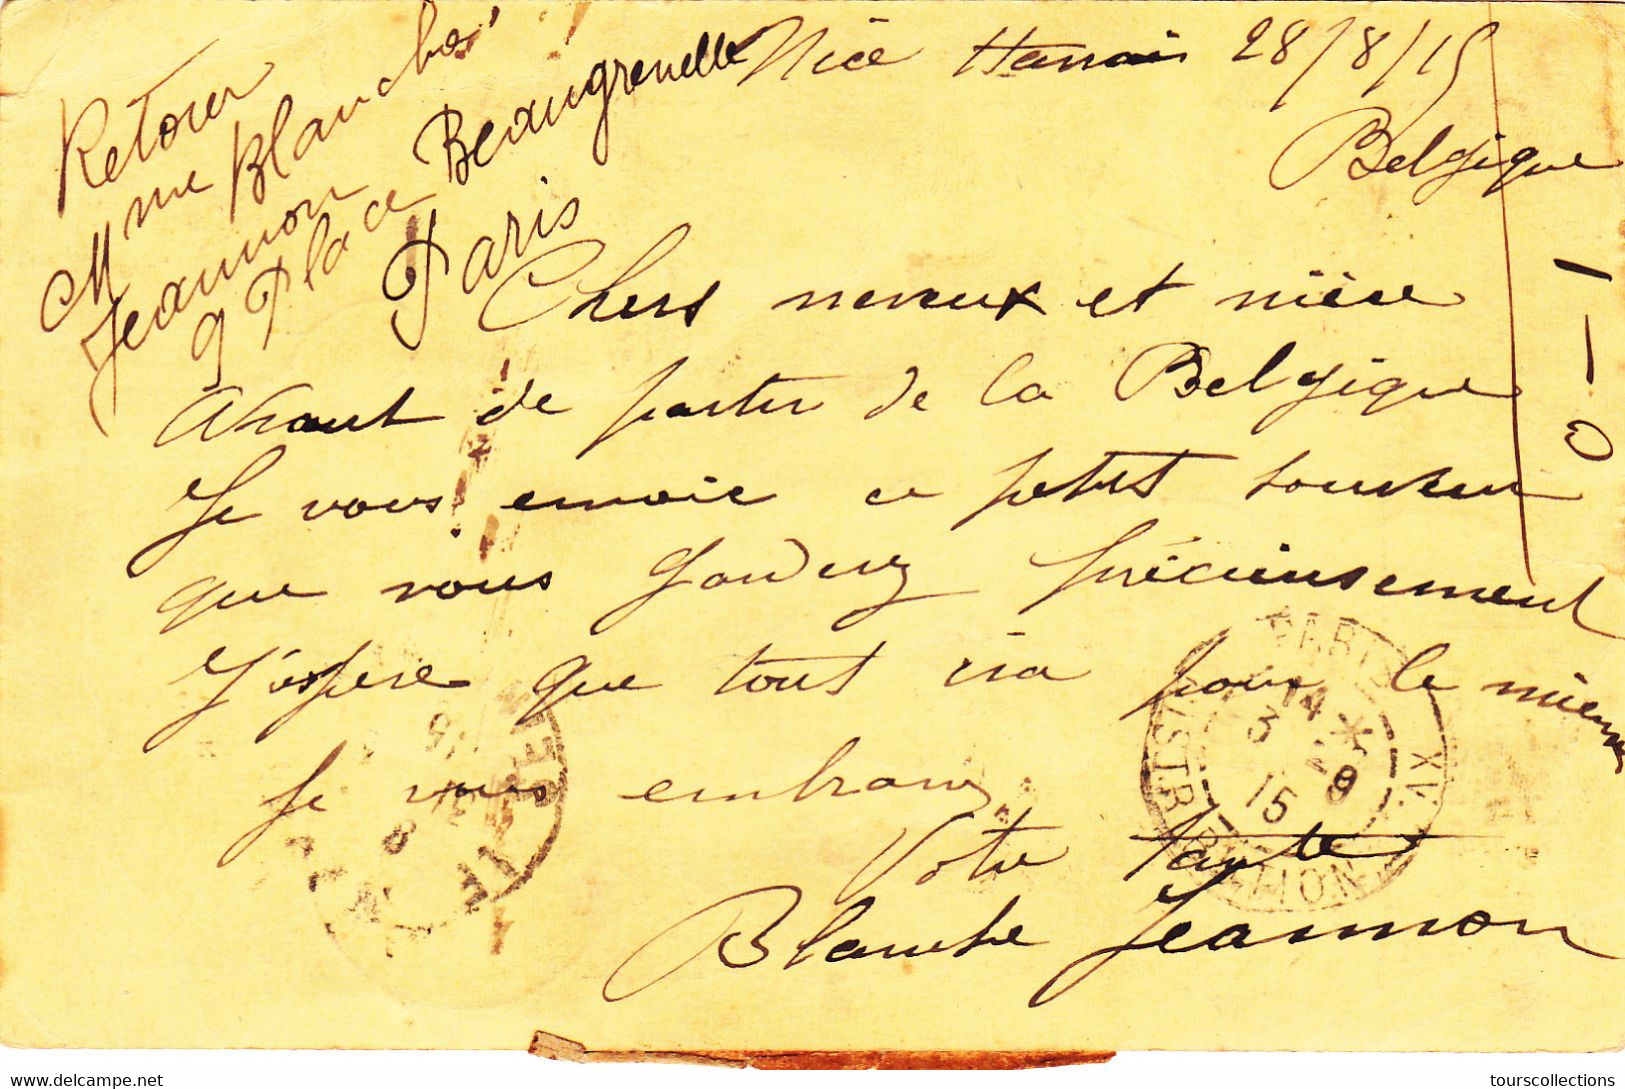 Retour
Mme Blanche
Jeannon
9 Place Beaugrenelle
Paris
Nice 28/8/15
Belgique
Chers neveux et nièce
Avant de partir de la Belgique
Je vous envoie ce petit souvenir
que vous garderez précieusement
J'espère que tout ira pour le mieux
Je vous embrasse
Votre tante
Blanche Jeannon
PARIS XV
DISTRIBUTION
14 *
3 - 9
15
delcampe.net
tourscollections